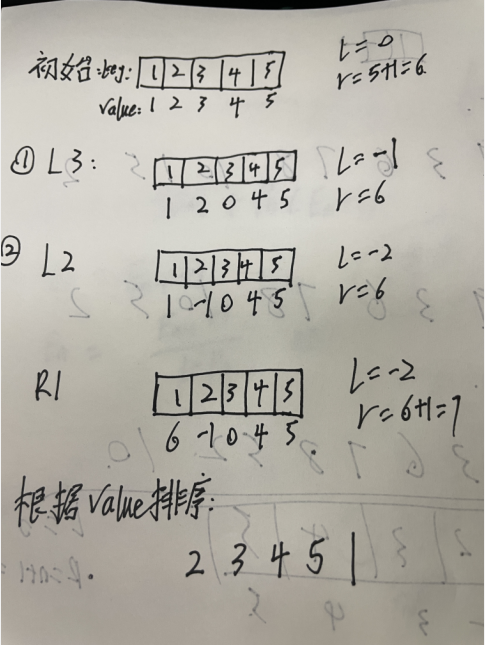 初始: key: 1 2 3 4 5 l=0
value: 1 2 3 4 5 r=5+1=6
① L3: 1 2 3 4 5 l=-1
1 2 0 4 5 r=6
② L2 1 2 3 4 5 l=-2
1 -1 0 4 5 r=6
R1 1 2 3 4 5 l=-2
6 -1 0 4 5 r=6+1=7
根据value排序:
2 3 4 5 1